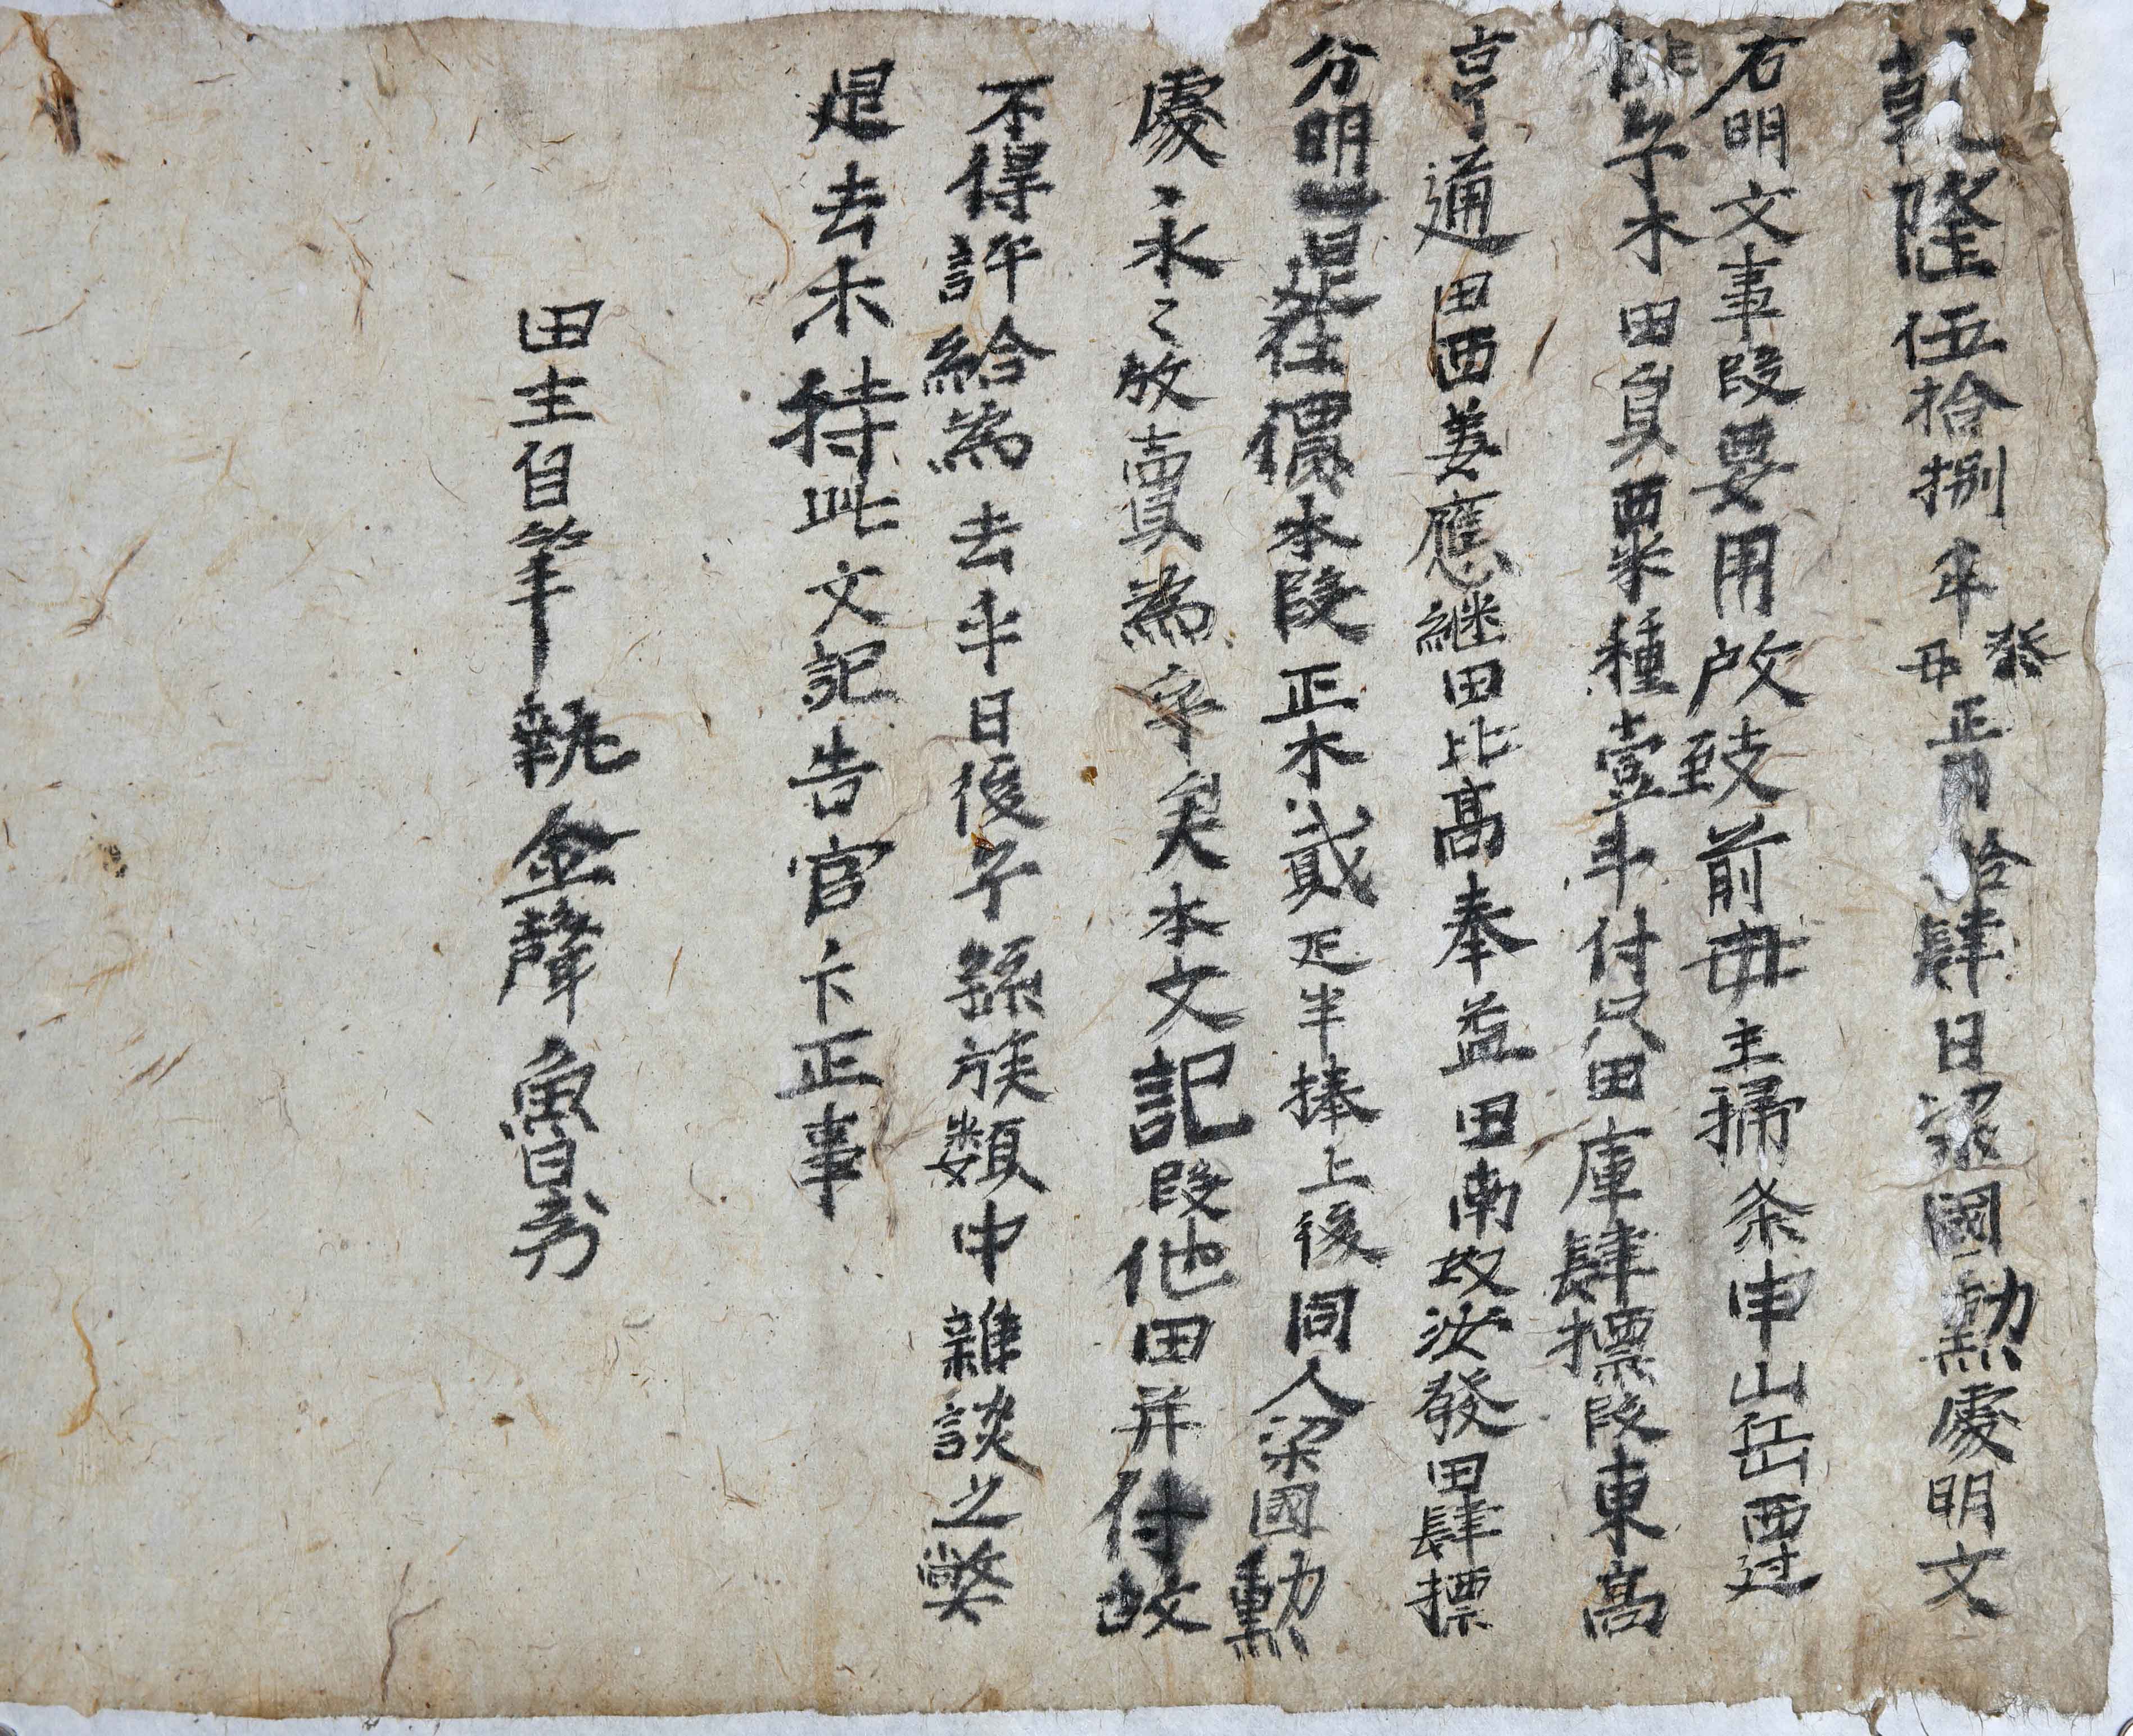 乾隆伍拾捌年癸丑正月拾肆日梁國勳處明文
右明文事段要用所致前毋主掃条申山岳西过
子木田員栗種壹斗付只田庫肆標段東高
亨通田西姜應継田北高奉益田南故汝發田肆標
分明是在価本段正木貳疋半捧上後同人梁國勳
處永々放賣為乎矣本文記段他田并付故
不得許給為去乎日後子孫族類中雜談之弊
是去木持此文記告官卞正事
田主自筆執金聲魯